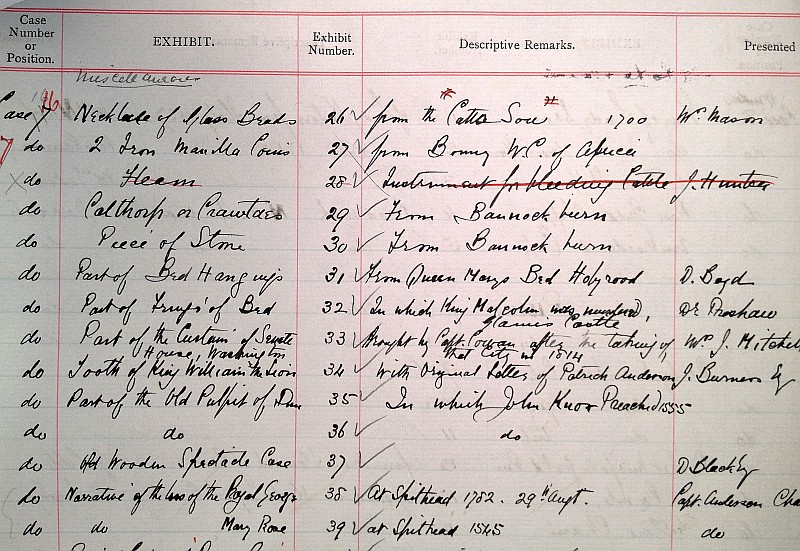 Case Number or Position. EXHIBIT. Exhibit Number. Descriptive Remarks. Presented
Miscellaneous
Case 7 Necklace of Glass Beads 26 from the "Catta Sou" 1700 Wm Mason
7 do 2 Iron Manilla Coins 27 from Bonny W.C. of Africa
do Fleam 28 Instrument for bleeding Cattle J. Hunter
do Calthorp or Crawtaes 29 From Bannockburn
do Piece of Stone 30 From Bannockburn
do Part of Bed Hangings 31 From Queen Marys Bed Holyrood D. Boyd
do Part of Fringe of Bed 32 In which King Malcolm was murdered, Dr Preshaw
Glamis Castle
do Part of the Curtain of Senate 33 Brought by Capt. Cowan after the taking of Wm J. Mitchell
House, Washington that City in 1814
do Tooth of King William the Lion 34 With Original Letter of Patrick Anderson J. Burness Esq
do Part of the Old Pulpit of Dun 35 In which John Knox Preached 1555
do do 36 do
do Old Wooden Spectacle Case 37 D Black Esq
do Narrative of the loss of the Royal George 38 At Spithead 1782. 29th Augt. Capt. Anderson Cha
do do Mary Rose 39 at Spithead 1545 do